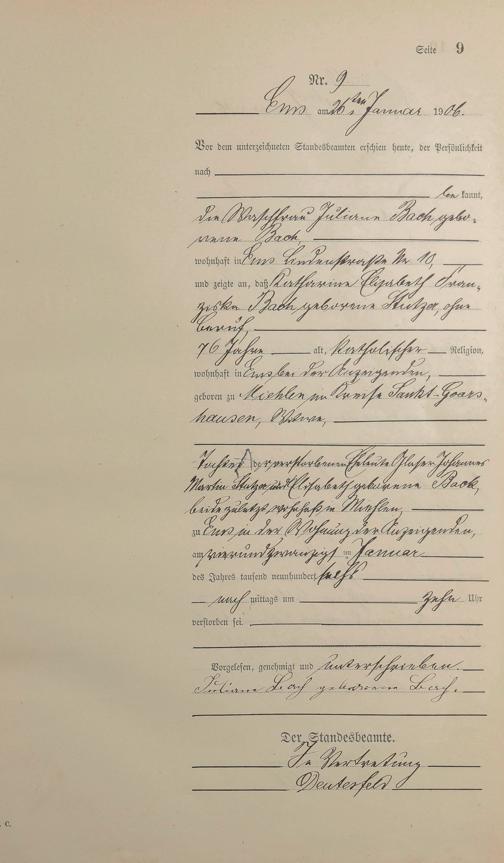 Seite 9
Nr. 9
Ems am 26ten Januar 1906.
Vor dem unterzeichneten Standesbeamten erschien heute, der Persönlichkeit
nach
bekannt,
die Waschfrau Juliane Bach, gebo-
rene Bach,
wohnhaft in Ems Lindenstraße Nr 10,
und zeigte an, daß Katharine Elisabeth Fran-
ziska Bach geborene Stutzer, ohne
Beruf,
76 Jahre alt, Katholischer Religion,
wohnhaft in Ems bei der Anzeigenden,
geboren zu Miehlen im Kreise Sankt-Goars-
hausen, Witwe,
Tochter der verstorbenen Eheleute Glaser Johannes
Martin und Elisabeth geborene
beide zuletzt wohnhaft in Miehlen,
zu Ems in der Wohnung der Anzeigenden,
am vierundzwanzigst en Januar
des Jahres tausend neunhundert sechs
nach mittags um zehn Uhr
verstorben sei.
Vorgelesen, genehmigt und unterschrieben.
Juliane Bach geborene Bach.
Der Standesbeamte.
In Vertretung
c.